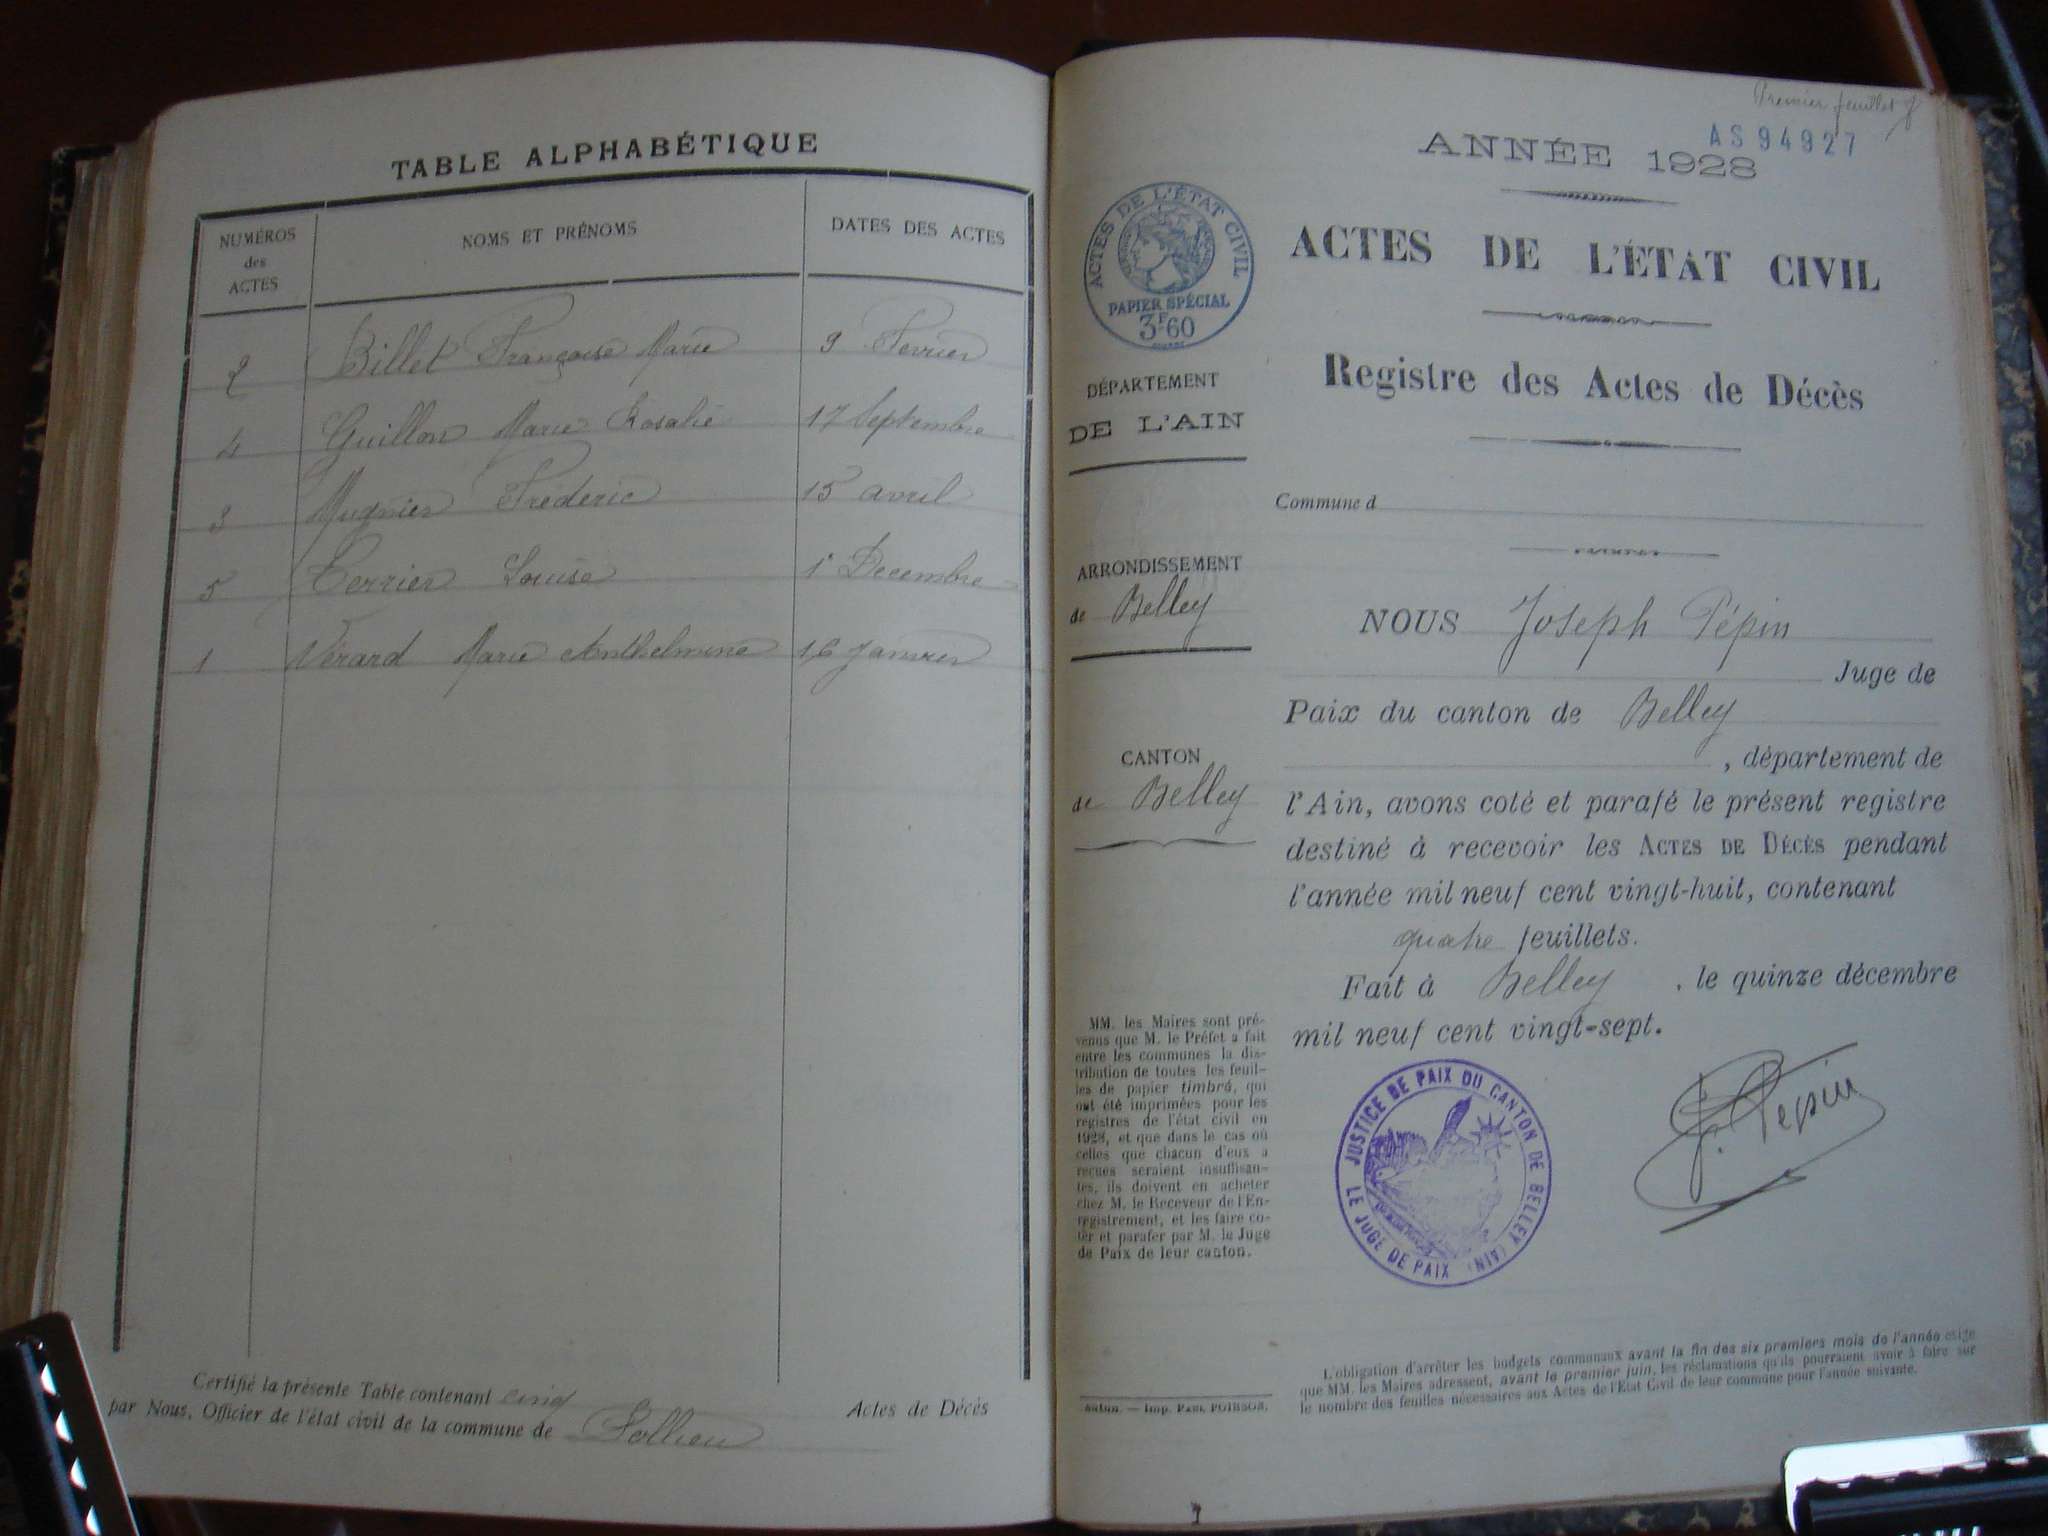 TABLE ALPHABÉTIQUE
NUMÉROS des ACTES
NOMS ET PRÉNOMS
DATES DES ACTES
2 Billet Françoise Marie 9 Fevrier
4 Guillon Marie Rosalie 17 Septembre
3 Mugnier Fréderic 15 avril
5 Terrier Louise 1r Decembre
1 Vérard Marie Anthelmine 16 Janvier
Certifié la présente Table contenant cinq Actes de Décès
par Nous, Officier de l'état civil de la commune de Pollieu
Premier feuillet
AS 94927
ANNÉE 1928
ACTES DE L'ÉTAT CIVIL
PAPIER SPÉCIAL
3F60
ACTES DE L'ÉTAT CIVIL
Registre des Actes de Décès
DÉPARTEMENT
DE L'AIN
Commune d
ARRONDISSEMENT
de Belley
CANTON
de Belley
NOUS Joseph Pépin
Juge de
Paix du canton de Belley
, département de
l'Ain, avons coté et parafé le présent registre
destiné à recevoir les ACTES DE DÉCÈS pendant
l'année mil neuf cent vingt-huit, contenant
quatre feuillets.
Fait à Belley, le quinze décembre
mil neuf cent vingt-sept.
MM. les Maires sont pré-
venus que M. le Préfet a fait
entre les communes la dis-
tribution de toutes les feuil-
les de papier timbré, qui
ont été imprimées pour les
registres de l'état civil en
1928, et que dans le cas où
celles que chacun d'eux a
reçues seraient insuffisan-
tes, ils doivent en acheter
chez M. le Receveur de l'En-
registrement, et les faire co-
ter et parafer par M. le Juge
de Paix de leur canton.
JUSTICE DE PAIX DU CANTON DE BELLEY (AIN)
LE JUGE DE PAIX
J. Pepin
L'obligation d'arrêter les budgets communaux avant la fin des six premiers mois de l'année exige
que MM. les Maires adressent, avant le premier juin, les réclamations qu'ils pourraient avoir à faire sur
le nombre des feuilles nécessaires aux Actes de l'État Civil de leur commune pour l'année suivante.
Imp. PAUL POIRSON.
1